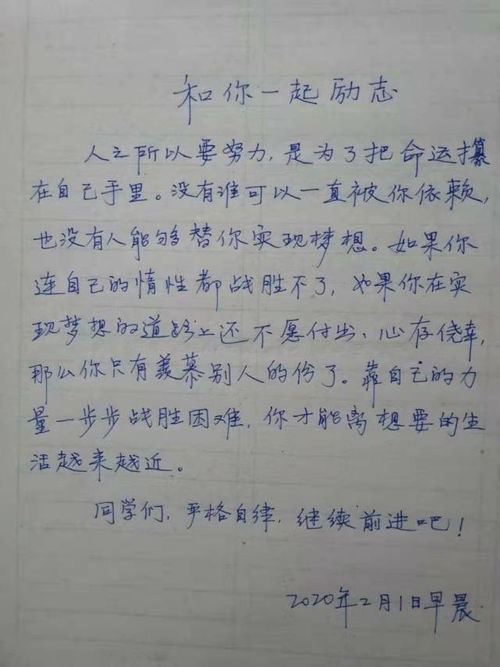 和你一起励志
人之所以要努力,是为了把命运攥
在自己手里。没有谁可以一直被你依赖,
也没有人能够替你实现梦想。如果你
连自己的惰性都战胜不了,如果你在实
现梦想的道路上还不愿付出、心存侥幸,
那么你只有羡慕别人的份了。靠自己的力
量一步步战胜困难,你才能离想要的生
活越来越近。
同学们,严格自律,继续前进吧!
2020年2月1日早晨